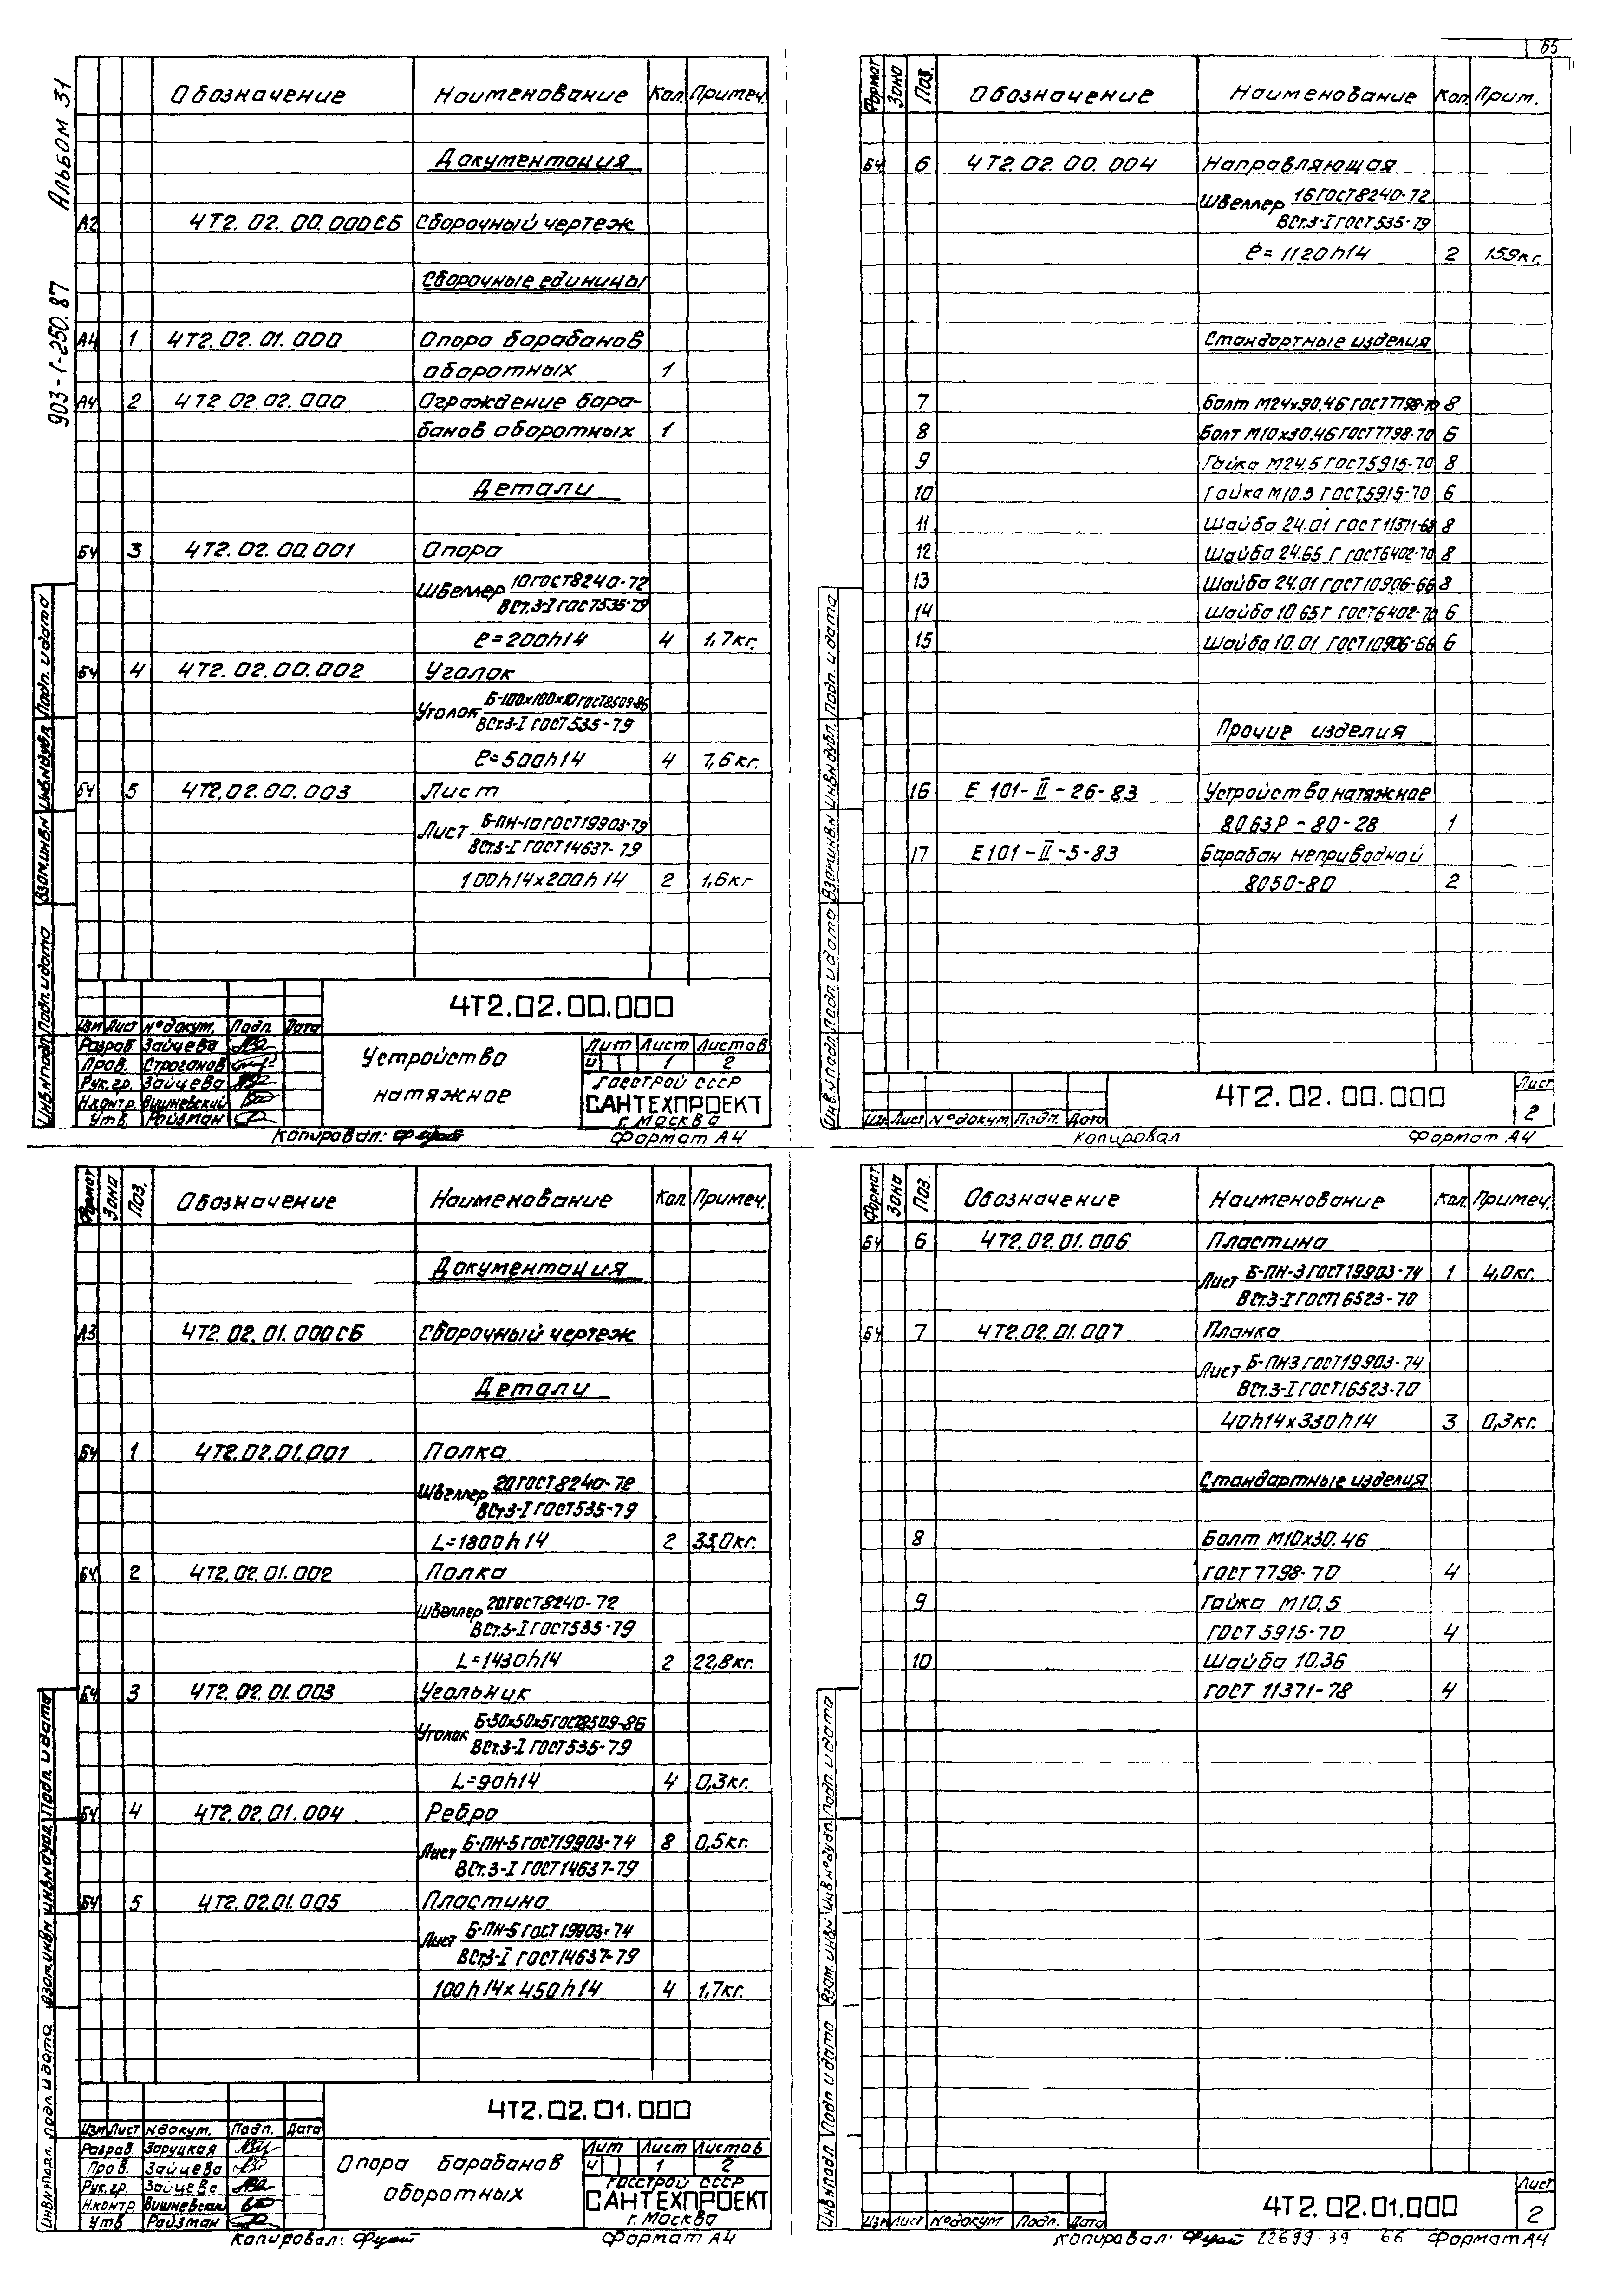 65
Альбом 31
903-1-250.87
Обозначение Наименование Кол. Примеч.
Документация
А2 4Т2.02.00.000СБ Сборочный чертеж
Сборочные единицы
А4 1 4Т2.02.01.000 Опора барабанов
оборотных 1
А4 2 4Т2.02.02.000 Ограждение бара-
банов оборотных 1
Детали
БЧ 3 4Т2.02.00.001 Опора
Швеллер 10 ГОСТ 8240-72
ВСт.3-I ГОСТ 535-79
ℓ=200h14 4 1,7кг.
БЧ 4 4Т2.02.00.002 Уголок
Уголок Б-100х100х10 ГОСТ 8509-86
ВСт.3-I ГОСТ 535-79
ℓ=500h14 4 7,6кг.
БЧ 5 4Т2.02.00.003 Лист
Лист Б-ПН-10 ГОСТ 19903-79
ВСт.3-I ГОСТ 14637-79
100h14х200h14 2 1,6кг
Инв.№подл. Подп. и дата Взам.инв.№ Инв.№дубл. Подп. и дата
4Т2.02.00.000
Изм Лист №докум. Подп. Дата
Разраб. Зайцева
Пров. Строганов
Рук.гр. Зайцева
Н.контр. Вишневский
Утв. Райзман
Устройство
натяжное
Лит Лист Листов
И 1 2
Госстрой СССР
САНТЕХПРОЕКТ
г. Москва
Копировал: Формат А4
Формат Зона Поз. Обозначение Наименование Кол. Прим.
БЧ 6 4Т2.02.00.004 Направляющая
Швеллер 16 ГОСТ 8240-72
ВСт.3-I ГОСТ 535-79
ℓ=1120h14 2 15,9кг.
Стандартные изделия
7 Болт М24х90.46 ГОСТ 7798-70 8
8 Болт М10х30.46 ГОСТ 7798-70 6
9 Гайка М24.5 ГОСТ 5915-70 8
10 Гайка М10.5 ГОСТ 5915-70 6
11 Шайба 24.01 ГОСТ 11371-68 8
12 Шайба 24.65 Г ГОСТ 6402-70 8
13 Шайба 24.01 ГОСТ 10906-66 8
14 Шайба 10 65Г ГОСТ 6402-70 6
15 Шайба 10.01 ГОСТ 10906-66 6
Прочие изделия
16 Е 101-II-26-83 Устройство натяжное
8063Р-80-28 1
17 Е101-II-5-83 Барабан неприводной
8050-80 2
Инв.№подл. Подп. и дата Взам.инв.№ Инв.№дубл. Подп. и дата
Изм Лист №докум. Подп. Дата
4Т2.02.00.000
Лист
2
Копировал Формат А4
Формат Зона Поз. Обозначение Наименование Кол. Примеч.
Документация
А3 4Т2.02.01.000СБ Сборочный чертеж
Детали
БЧ 1 4Т2.02.01.001 Полка
Швеллер 20 ГОСТ 8240-72
ВСт.3-I ГОСТ 535-79
L=1800h14 2 33,0кг.
БЧ 2 4Т2.02.01.002 Полка
Швеллер 20 ГОСТ 8240-72
ВСт.3-I ГОСТ 535-79
L=1430h14 2 22,8кг.
БЧ 3 4Т2.02.01.003 Угольник
Уголок Б-50х50х5 ГОСТ 8509-86
ВСт.3-I ГОСТ 535-79
L=90h14 4 0,3кг.
БЧ 4 4Т2.02.01.004 Ребро
Лист Б-ПН-5 ГОСТ 19903-74 8 0,5кг.
ВСт.3-I ГОСТ 14637-79
БЧ 5 4Т2.02.01.005 Пластина
Лист Б-ПН-5 ГОСТ 19903-74
ВСт3-I ГОСТ 14637-79
100h14х450h14 4 1,7кг.
Инв.№подл. Подп. и дата Взам.инв.№ Инв.№дубл. Подп. и дата
4Т2.02.01.000
Изм Лист №докум. Подп. Дата
Разраб. Заруцкая
Пров. Зайцева
Рук.гр. Зайцева
Н.контр Вишневский
Утв. Райзман
Опора барабанов
оборотных
Лит Лист Листов
И 1 2
Госстрой СССР
САНТЕХПРОЕКТ
г. Москва
Копировал: Формат А4
Формат Зона Поз. Обозначение Наименование Кол. Примеч.
БЧ 6 4Т2.02.01.006 Пластина
Лист Б-ПН-3 ГОСТ 19903-74 1 4,0кг.
ВСт.3-I ГОСТ 16523-70
БЧ 7 4Т2.02.01.007 Планка
Лист Б-ПН3 ГОСТ 19903-74
ВСт.3-I ГОСТ 16523-70
40h14х330h14 3 0,3кг.
Стандартные изделия
8 Болт М10х30.46
ГОСТ 7798-70 4
9 Гайка М10.5
ГОСТ 5915-70 4
10 Шайба 10.36
ГОСТ 11371-78 4
Инв.№подл. Подп. и дата Взам.инв.№ Инв.№дубл. Подп. и дата
Изм Лист №докум Подп. Дата
4Т2.02.01.000
Лист
2
Копировал: 22699-39 66 Формат А4